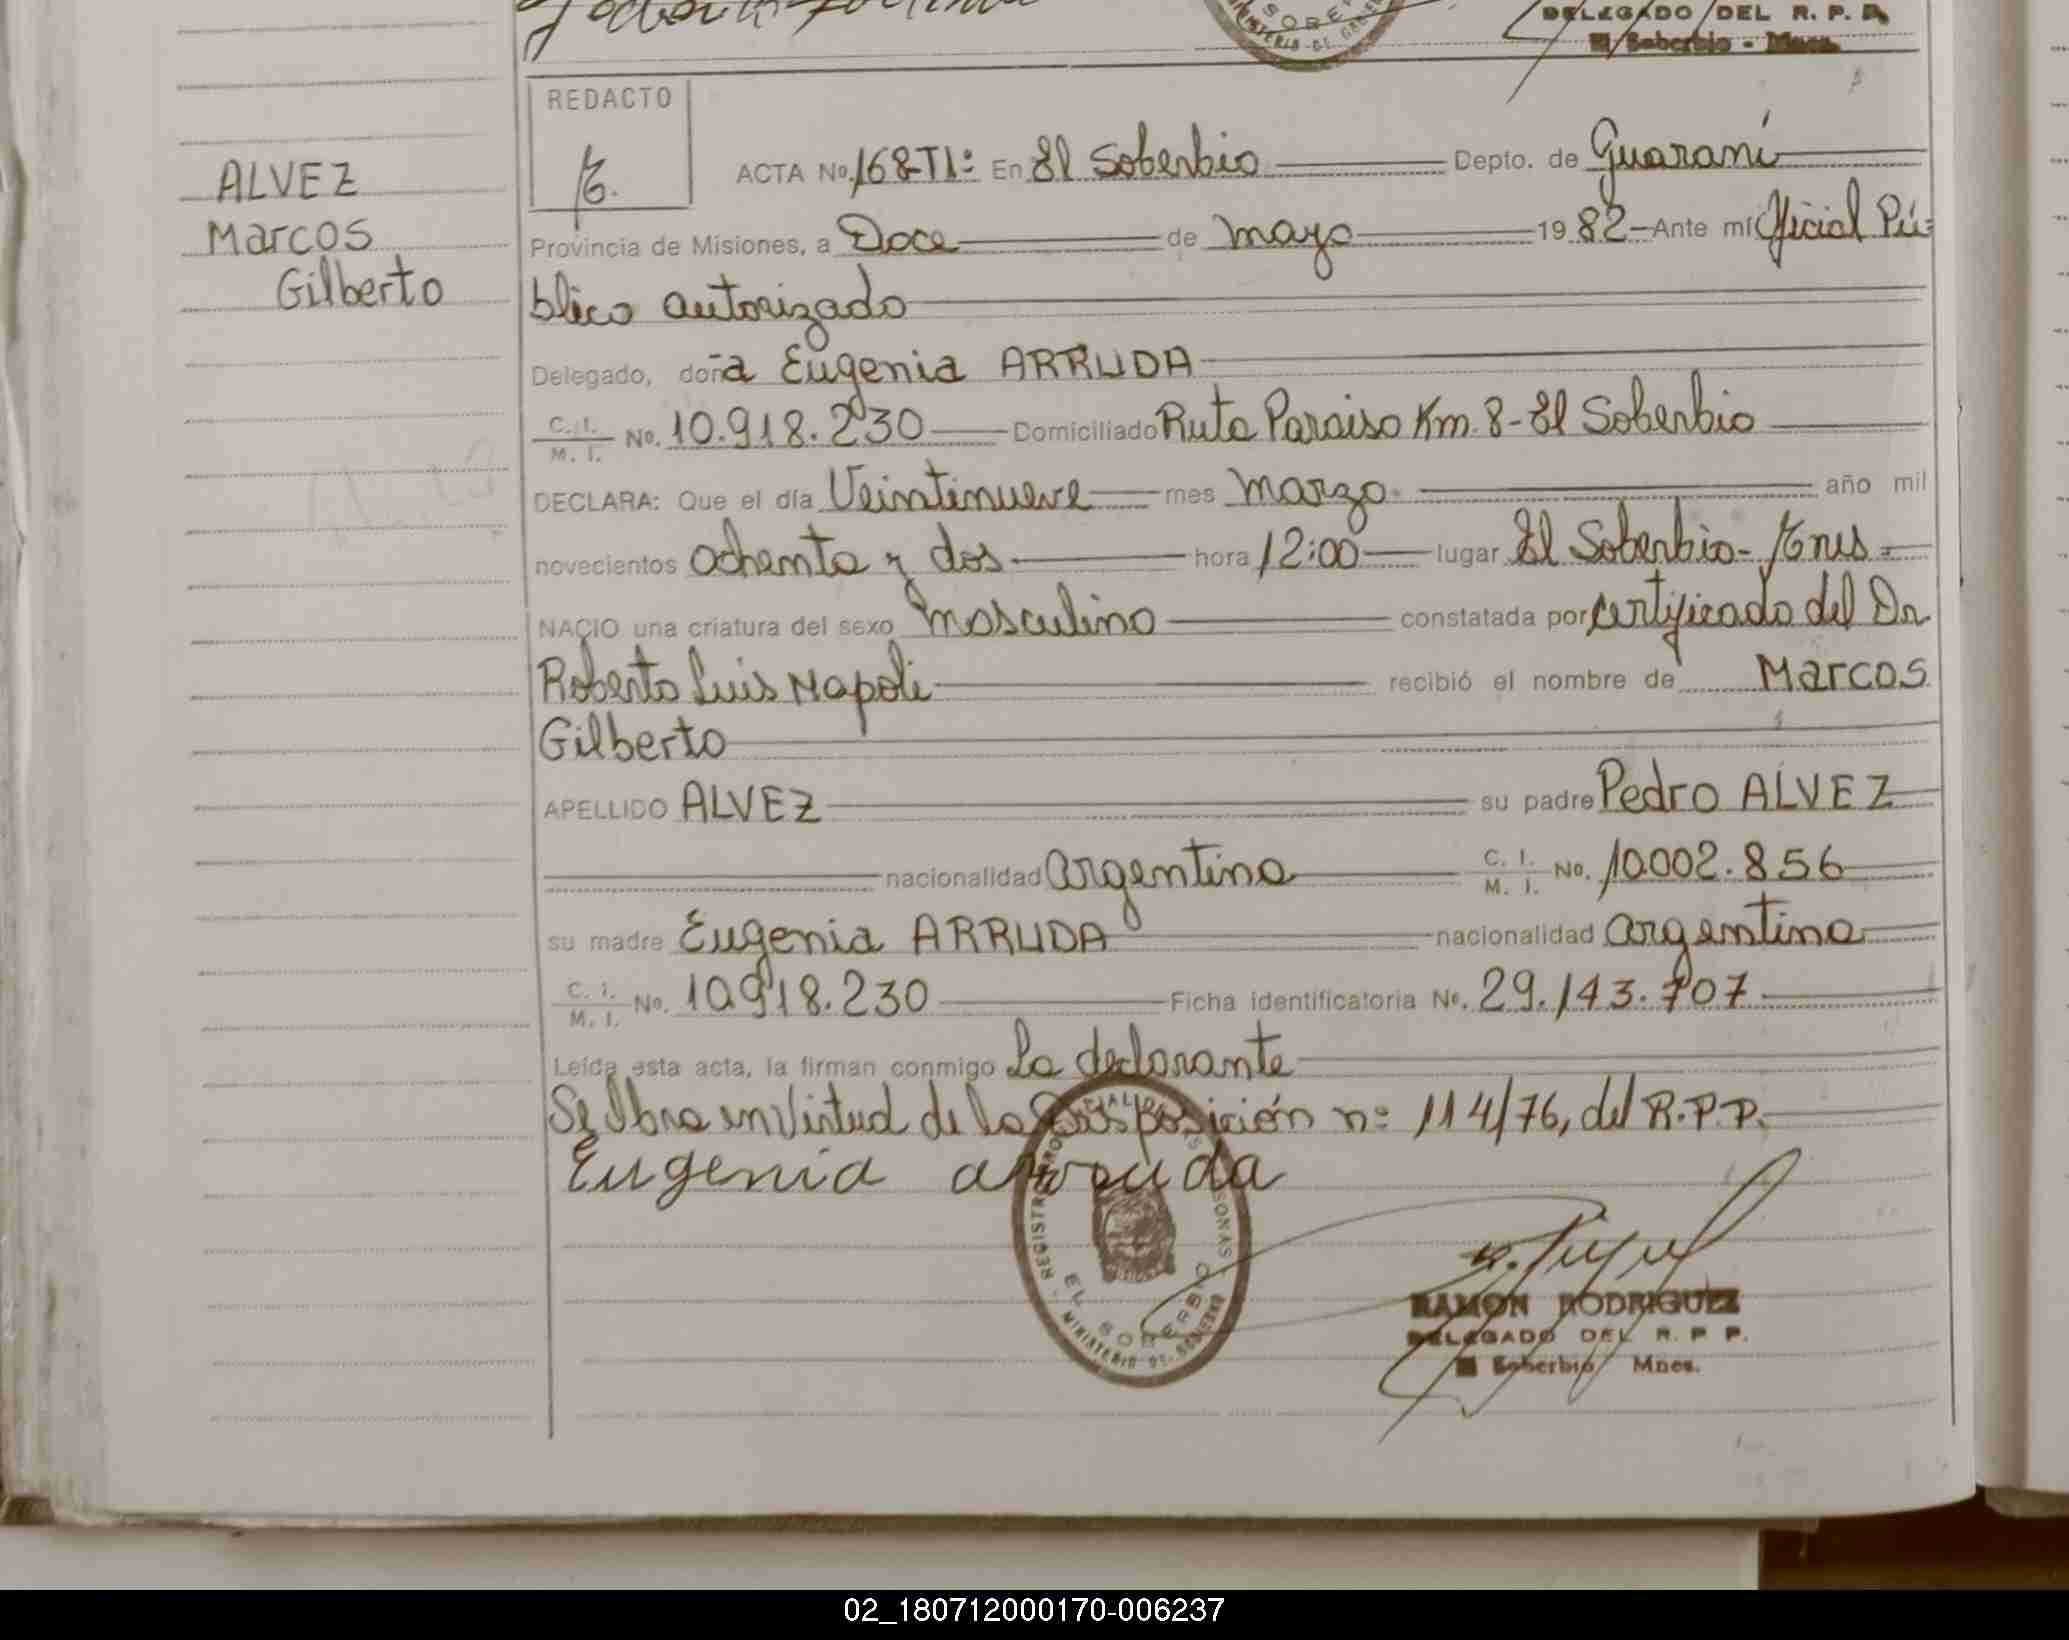 DELEGADO DEL R. P. P.
El Soberbio - Mnes.
REDACTO
ALVEZ
Marcos
Gilberto
ACTA No. 168-T1: En El Soberbio Depto. de Guaraní
Provincia de Misiones, a Doce de mayo 1982 Ante mí Oficial Pú-
blico autorizado
Delegado, doña Eugenia ARRUDA
C. I. M. I. No. 10.918.230 Domiciliado Ruta Paraiso Km. 8 - El Soberbio
DECLARA: Que el día Veintinueve mes marzo año mil
novecientos ochenta y dos hora 12:00 lugar El Soberbio -
NACIO una criatura del sexo masculino constatada por certificado del Dr
Roberto Luis Napoli recibió el nombre de Marcos
Gilberto
APELLIDO ALVEZ su padre Pedro ALVEZ
nacionalidad argentina C. I. M. I. No. 10.002.856
su madre Eugenia ARRUDA nacionalidad argentina
C. I. M. I. No. 10.918.230 Ficha identificatoria No. 29.143.707
Leída esta acta, la firman conmigo La declarante
Se labra en Virtud de la Disposición n: 114/76, del R.P.P.
Eugenia arruda
EL SOBERBIO
MINISTERIO DE GOBIERNO
RAMON RODRIGUEZ
DELEGADO DEL R. P. P.
El Soberbio Mnes.
02_180712000170-006237